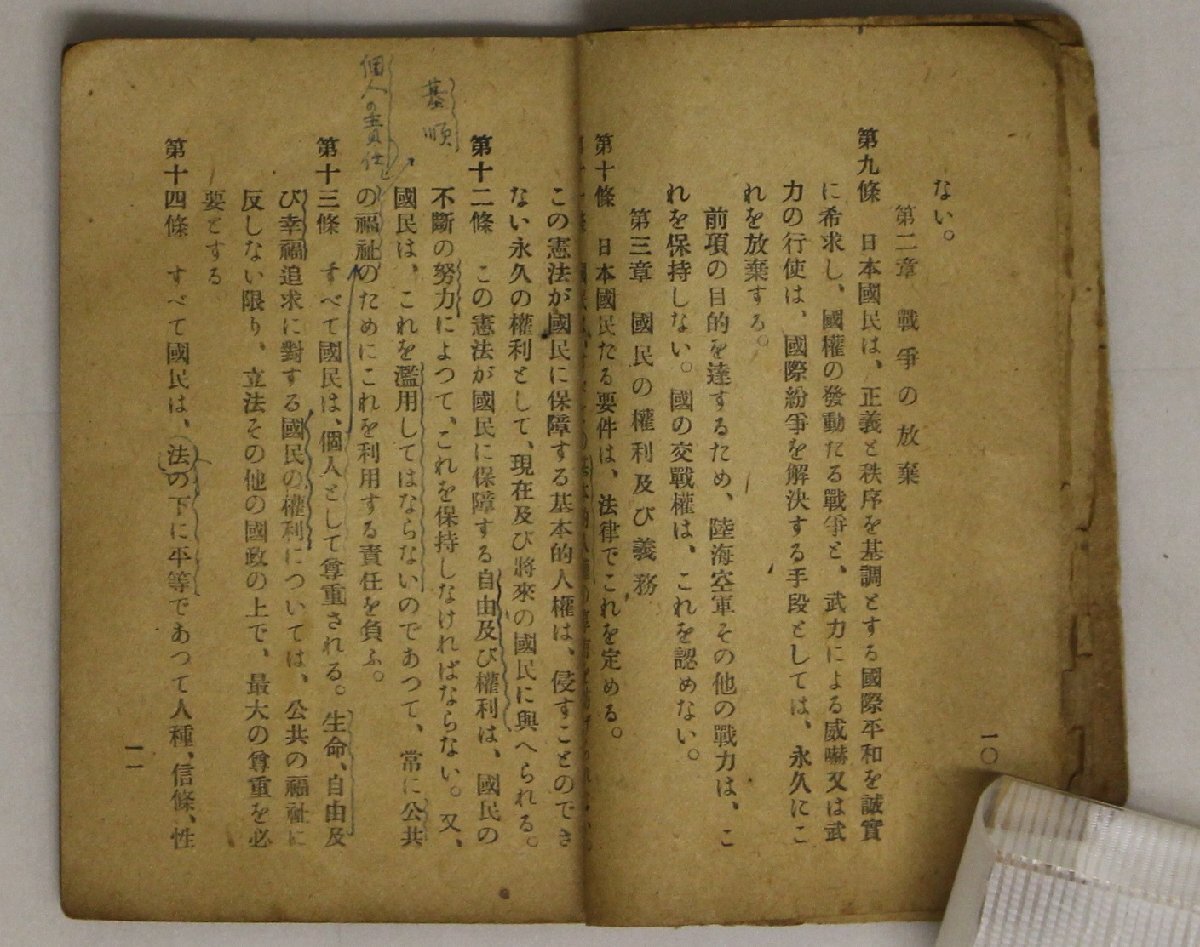 ない。
第二章 戰爭の放棄
第九條 日本國民は、正義と秩序を基調とする國際平和を誠實
に希求し、國權の發動たる戰爭と、武力による威嚇又は武
力の行使は、國際紛爭を解決する手段としては、永久にこ
れを放棄する。
前項の目的を達するため、陸海空軍その他の戰力は、こ
れを保持しない。國の交戰權は、これを認めない。
第三章 國民の權利及び義務
第十條 日本國民たる要件は、法律でこれを定める。
一〇
この憲法が國民に保障する基本的人權は、侵すことのでき
ない永久の權利として、現在及び將來の國民に與へられる。
第十二條 この憲法が國民に保障する自由及び權利は、國民の
不斷の努力によつて、これを保持しなければならない。又、
國民は、これを濫用してはならないのであつて、常に公共
の福祉のためにこれを利用する責任を負ふ。
第十三條 すべて國民は、個人として尊重される。生命、自由及
び幸福追求に對する國民の權利については、公共の福祉に
反しない限り、立法その他の國政の上で、最大の尊重を必
要とする
第十四條 すべて國民は、法の下に平等であつて人種、信條、性
一一
個人の責任